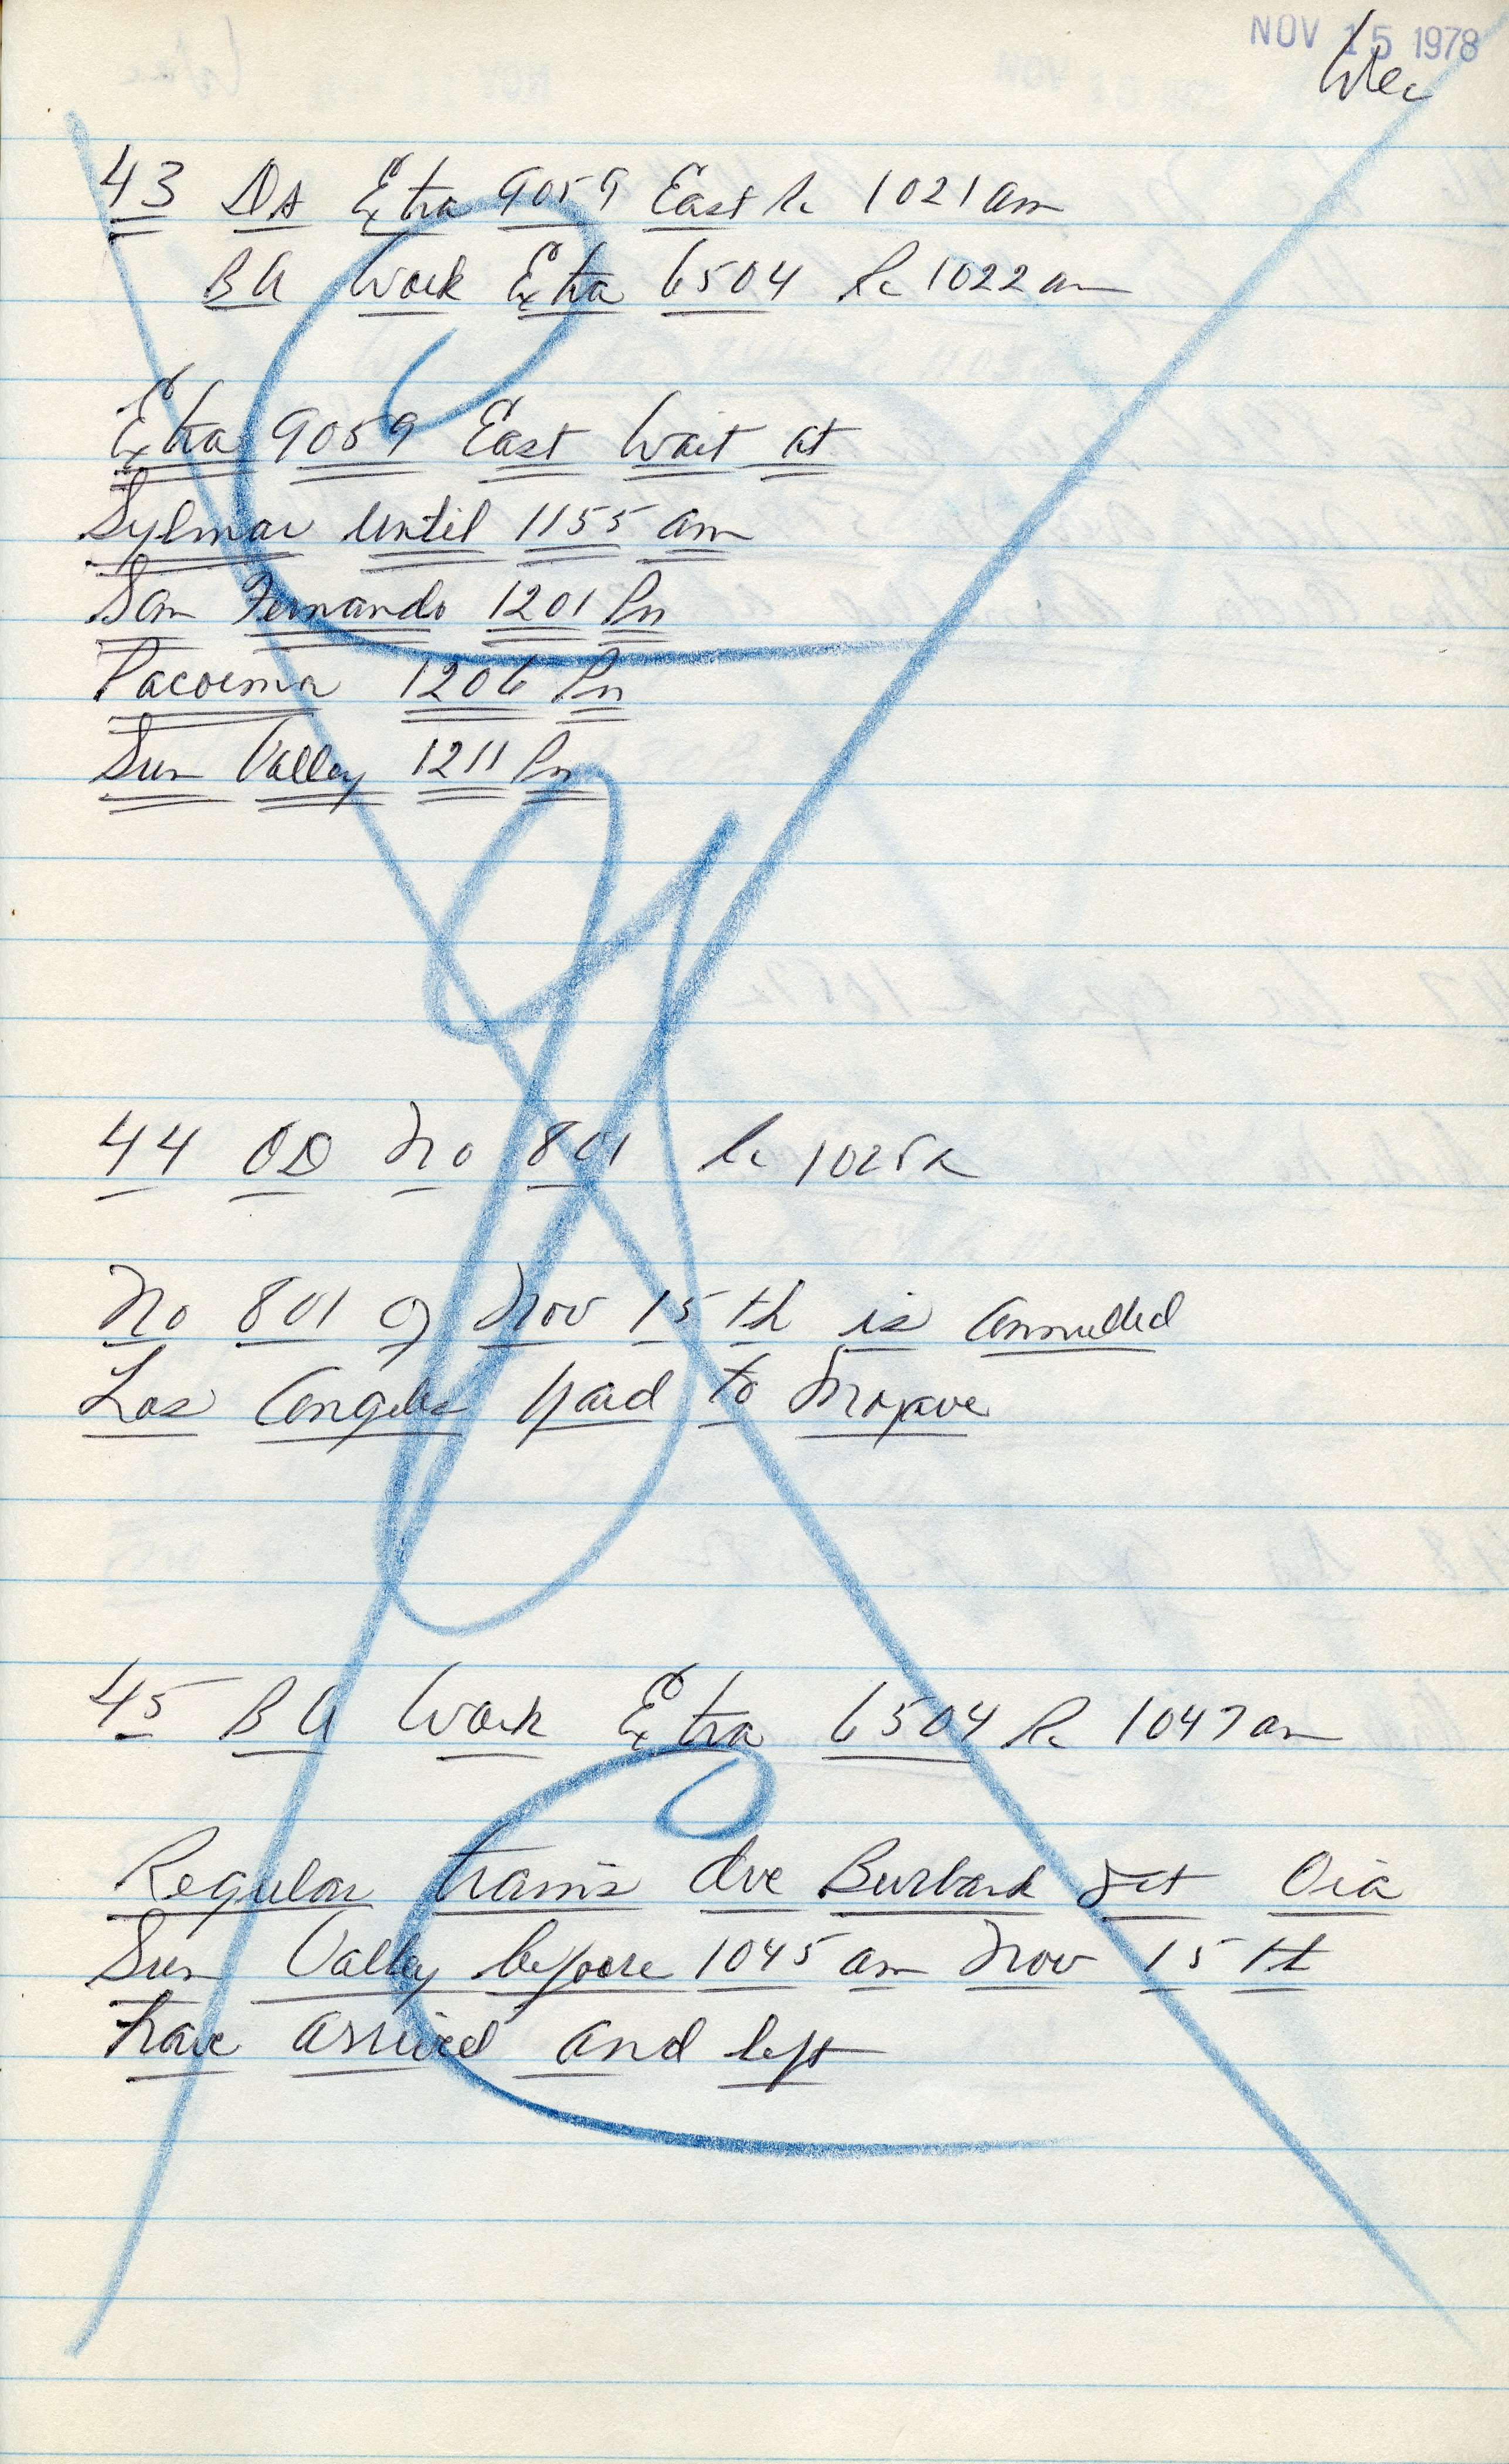 NOV 15 1978
43 DS Extra 9059 East 1021 am
BU Work Extra 6504 1022 am
Extra 9059 East Wait at
Sylmar until 1155 am
San Fernando 1201 Pm
Pacoima 1206 Pm
Sun Valley 1211 Pm
44 OD No 801
No 801 of Nov 15th is annulled
Los Angeles Yard to Mojave
45 BU Work Extra 6504 1047 am
Regular trains due Burbank Jct via
Sun Valley before 1045 am Nov 15th
have arrived and left